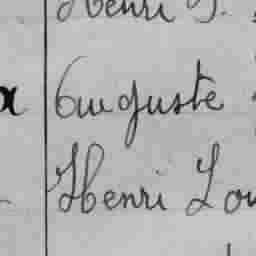 Henri J.
Auguste
Henri Lou